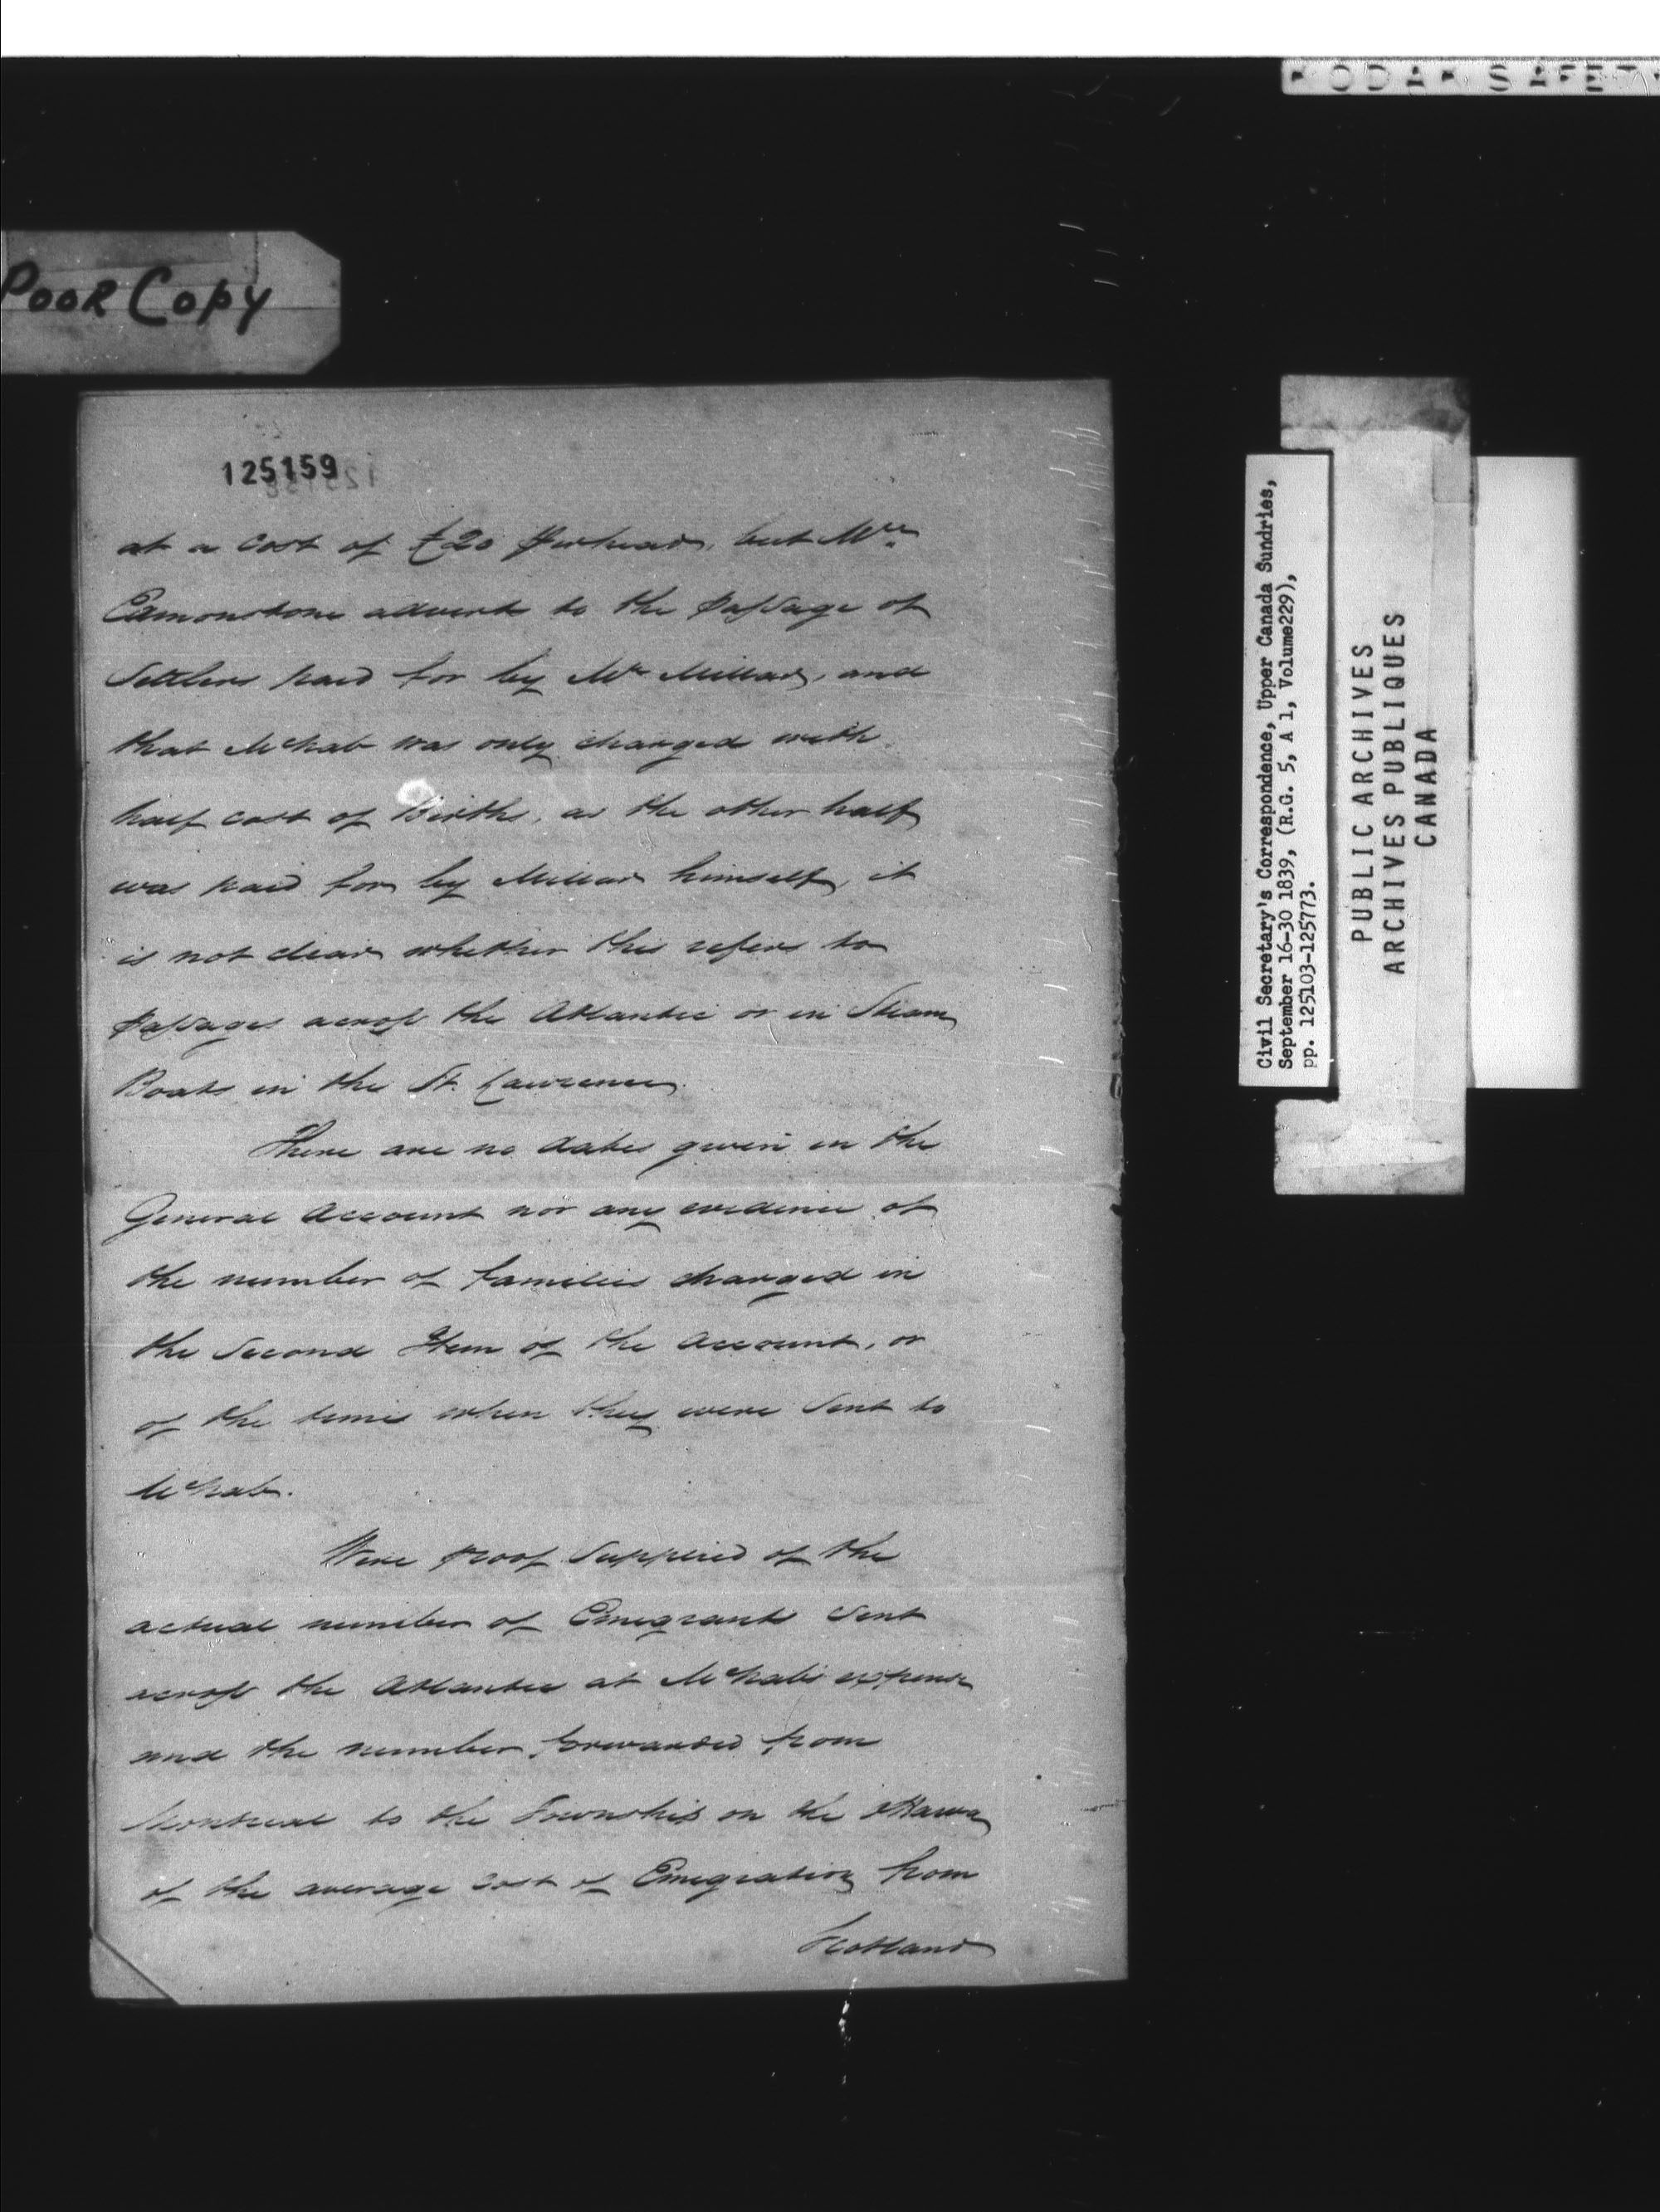 KODAK SAFETY
POOR COPY
125159
at a cost of £20 per head, but Mr.
Edmonstone adverts to the passage of
Settlers paid for by Mr Millar, and
that McNab was only charged with
half cost of Births, as the other half
was paid for by Millar himself, it
is not clear whether this refers to
passages across the Atlantic or in Steam
Boats in the St. Lawrence.
There are no dates given in the
General Account nor any evidence of
the number of families charged in
the Second Item of the Account, or
of the times when they were sent to
McNab.
Were proof supplied of the
actual number of Emigrants sent
across the Atlantic at McNab's expense
and the number forwarded from
Montreal to the Township on the Ottawa
of the average cost of Emigration from
Scotland
Civil Secretary's Correspondence, Upper Canada Sundries,
September 16-30 1839, (R.G. 5, A 1, Volume229),
pp. 125103-125773.
PUBLIC ARCHIVES
ARCHIVES PUBLIQUES
CANADA